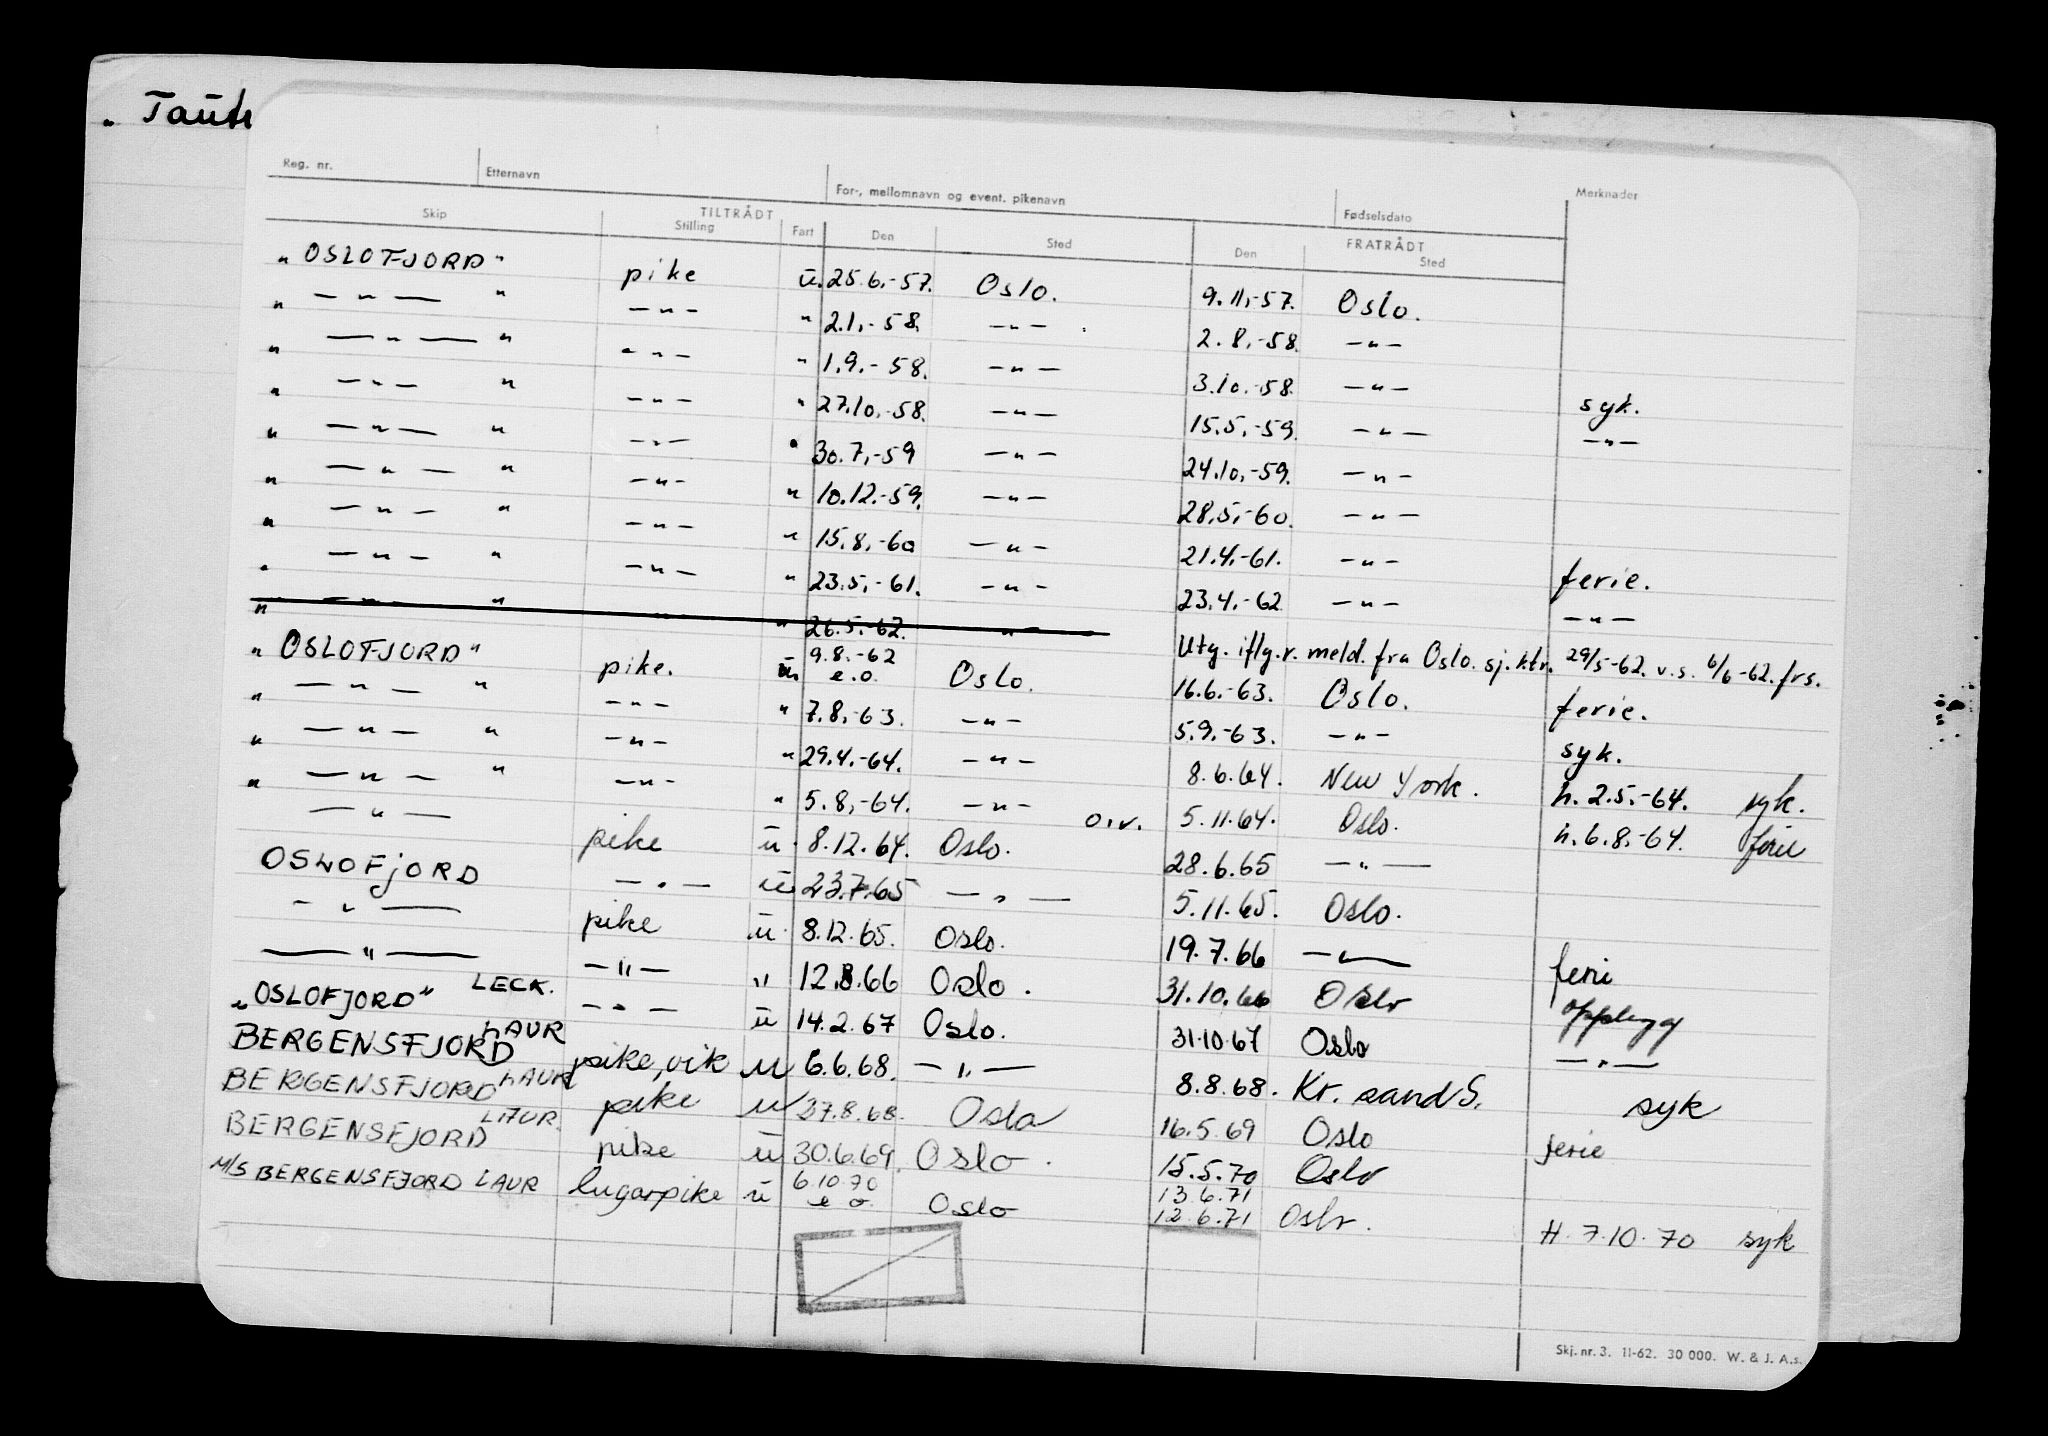 „ Tautr
Reg. nr. Etternavn For-, mellomnavn og event. pikenavn Fødselsdato Merknader
TILTRÅDT FRATRÅDT
Skip Stilling Fart Den Sted Den Sted
„ OSLOFJORD " pike ū. 25.6.-57. Oslo. 9.11.-57. Oslo.
" — " — " — " — " 2.1.-58. — " — 2.8.-58. — " —
" — " — " — " — " 1.9.-58. — " — 3.10.-58. — " — syk.
" — " — " — " — " 27.10.-58. — " — 15.5.-59. — " — — " —
" — " — " — " — " 30.7.-59 — " — 24.10.-59. — " —
" — " — " — " — " 10.12.-59. — " — 28.5.-60. — " —
" — " — " — " — " 15.8.-60 — " — 21.4.-61. — " — ferie.
" — " — " — " — " 23.5.-61. — " — 23.4.-62 — " — — " —
" — " — " " " 26.5.-62. — " — Utg. iflg. r. meld. fra Oslo. sj.ktr. 29/5-62. v.s. 6/6-62. frs.
„ OSLOFJORD " pike. ū. 9.8.-62 e.o. Oslo. 16.6.-63. Oslo. ferie.
" — " — " — " — " 7.8.-63. — " — 5.9.-63. — " — syk.
" — " — " — " — " 29.4.-64. — " — 8.6.64. New York. h. 2.5.-64. syk.
" — " — " — " — " 5.8.-64. — " — o.v. 5.11.64. Oslo. h. 6.8.-64. ferie
— " — pike ū 8.12.64. Oslo. 28.6.65 — " —
OSLOFJORD — " — ū 23.7.65 — " — 5.11.65. Oslo.
— " — pike ū 8.12.65. Oslo. 19.7.66 — " — ferie
— " — — " — " 12.8.66 Oslo. 31.10.66 Oslo opplegg
„OSLOFJORD" LECK. — " — ū 14.2.67 Oslo. 31.10.67 Oslo — " —
BERGENSFJORD LAUR pike, vik u 6.6.68. — " — 8.8.68. Kr. sand S. syk
BERGENSFJORD LAUR pike u 27.8.68. Oslo 16.5.69 Oslo ferie
BERGENSFJORD LAUR. pike ū 30.6.69. Oslo. 15.5.70 Oslo
M/S BERGENSFJORD LAUR lugarpike ū 6.10.70 e o. Oslo 13.6.71 12.6.71 Oslo. H. 7.10.70 syk
Skj. nr. 3. 11-62. 30 000. W. & J. A.s.